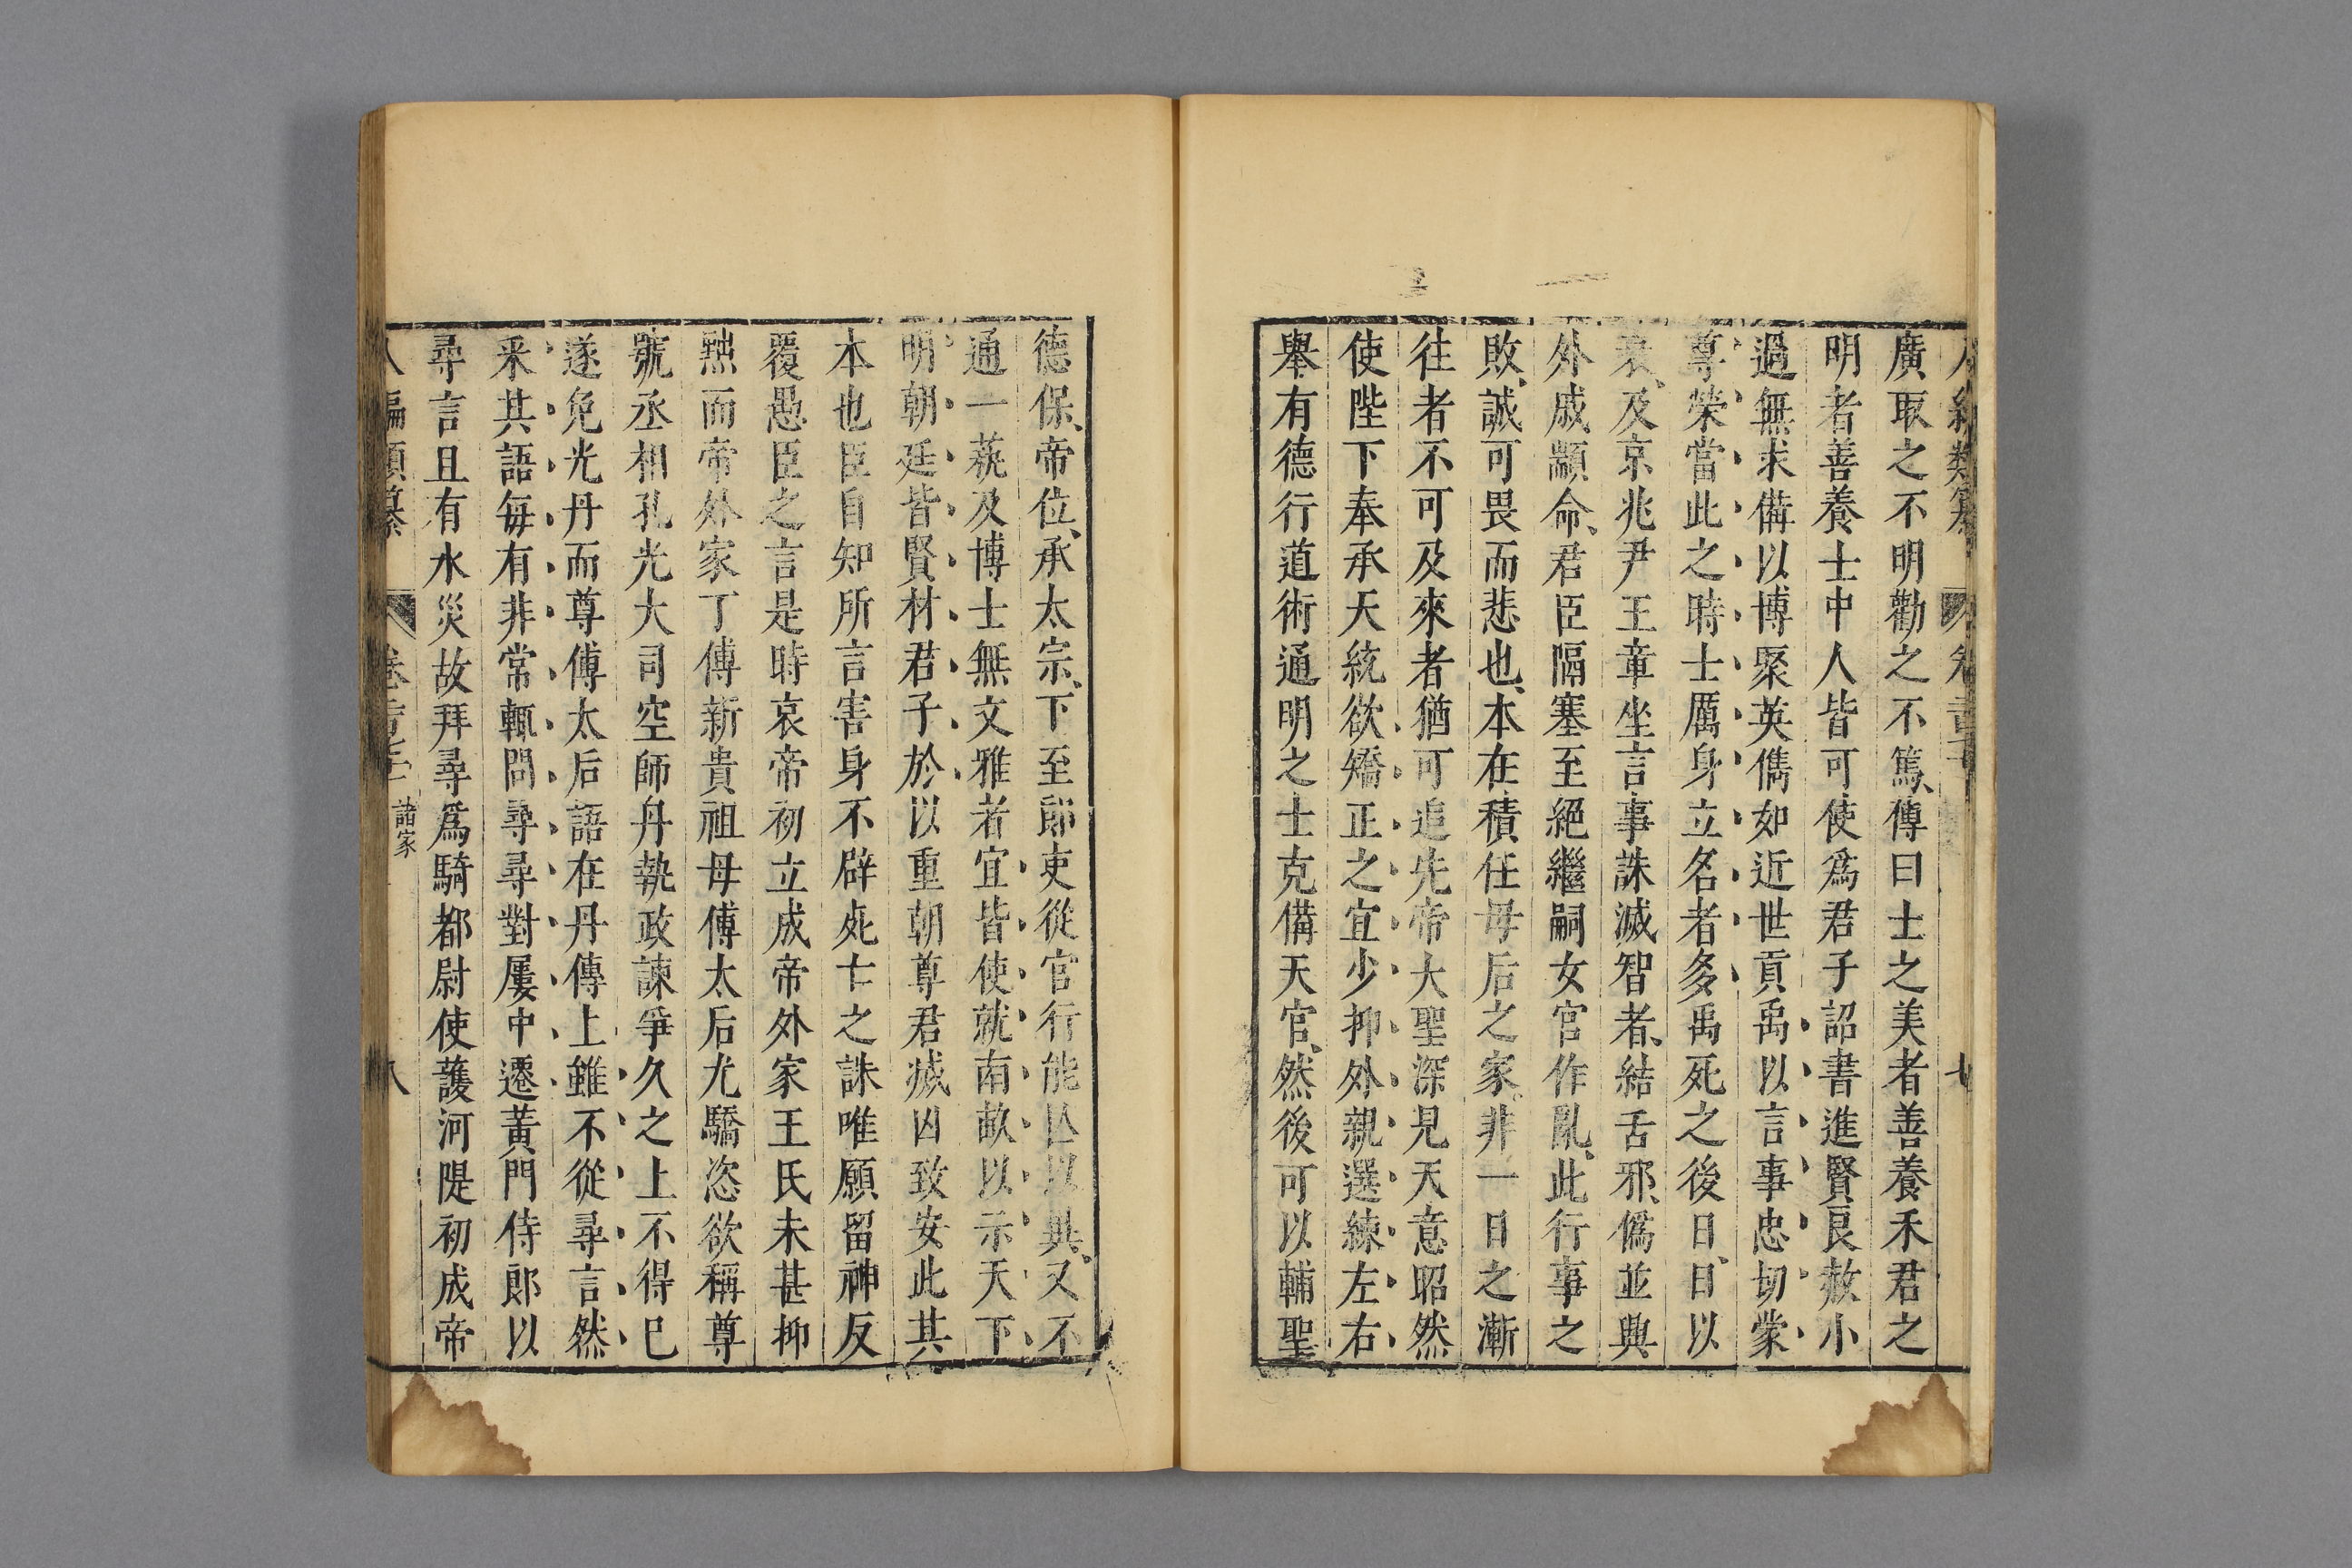 廣取之不明勸之不篤傳曰士之美者善養禾君之
明者善養士中人皆可使爲君子詔書進賢良赦小
過無求備以博聚英儁如近世貢禹以言事忠切蒙
尊榮當此之時士厲身立名者多禹死之後日日以
衰及京兆尹王章坐言事誅滅智者結舌邪僞並興
外戚顓命君臣隔塞至絕繼嗣女官作亂此行事之
敗誠可畏而悲也本在積任母后之家非一日之漸
往者不可及來者猶可追先帝大聖深見天意昭然
使陛下奉承天統欲矯正之宜少抑外親選練左右
舉有德行道術通明之士克備天官然後可以輔聖
德保帝位承太宗下至郎吏從官行能以異又不
通一蓺及博士無文雅者宜皆使就南畝以示天下
明朝廷皆賢材君子於以重朝尊君滅凶致安此其
本也臣自知所言害身不辟死亡之誅唯願留神反
覆愚臣之言是時哀帝初立成帝外家王氏未甚抑
黜而帝外家丁傅新貴祖母傅太后尤驕恣欲稱尊
號丞相孔光大司空師丹執政諫爭久之上不得已
遂免光丹而尊傅太后語在丹傳上雖不從尋言然
采其語每有非常輒問尋尋對屢中遷黃門侍郎以
尋言且有水災故拜尋爲騎都尉使護河隄初成帝
八編類纂 諸家 八